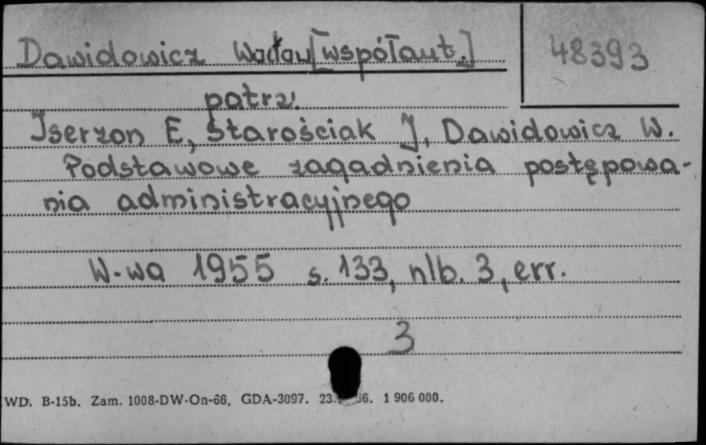 Dawidowicz Wacław [współaut.]
48393
patrz:
Iserzon E, Starościak J, Dawidowicz W.
Podstawowe zagadnienia postępowa-
nia administracyjnego
W-wa 1955 s. 133, nlb. 3, err.
3
WD. B-15b. Zam. 1008-DW-On-66. GDA-3097. 1 906 000.